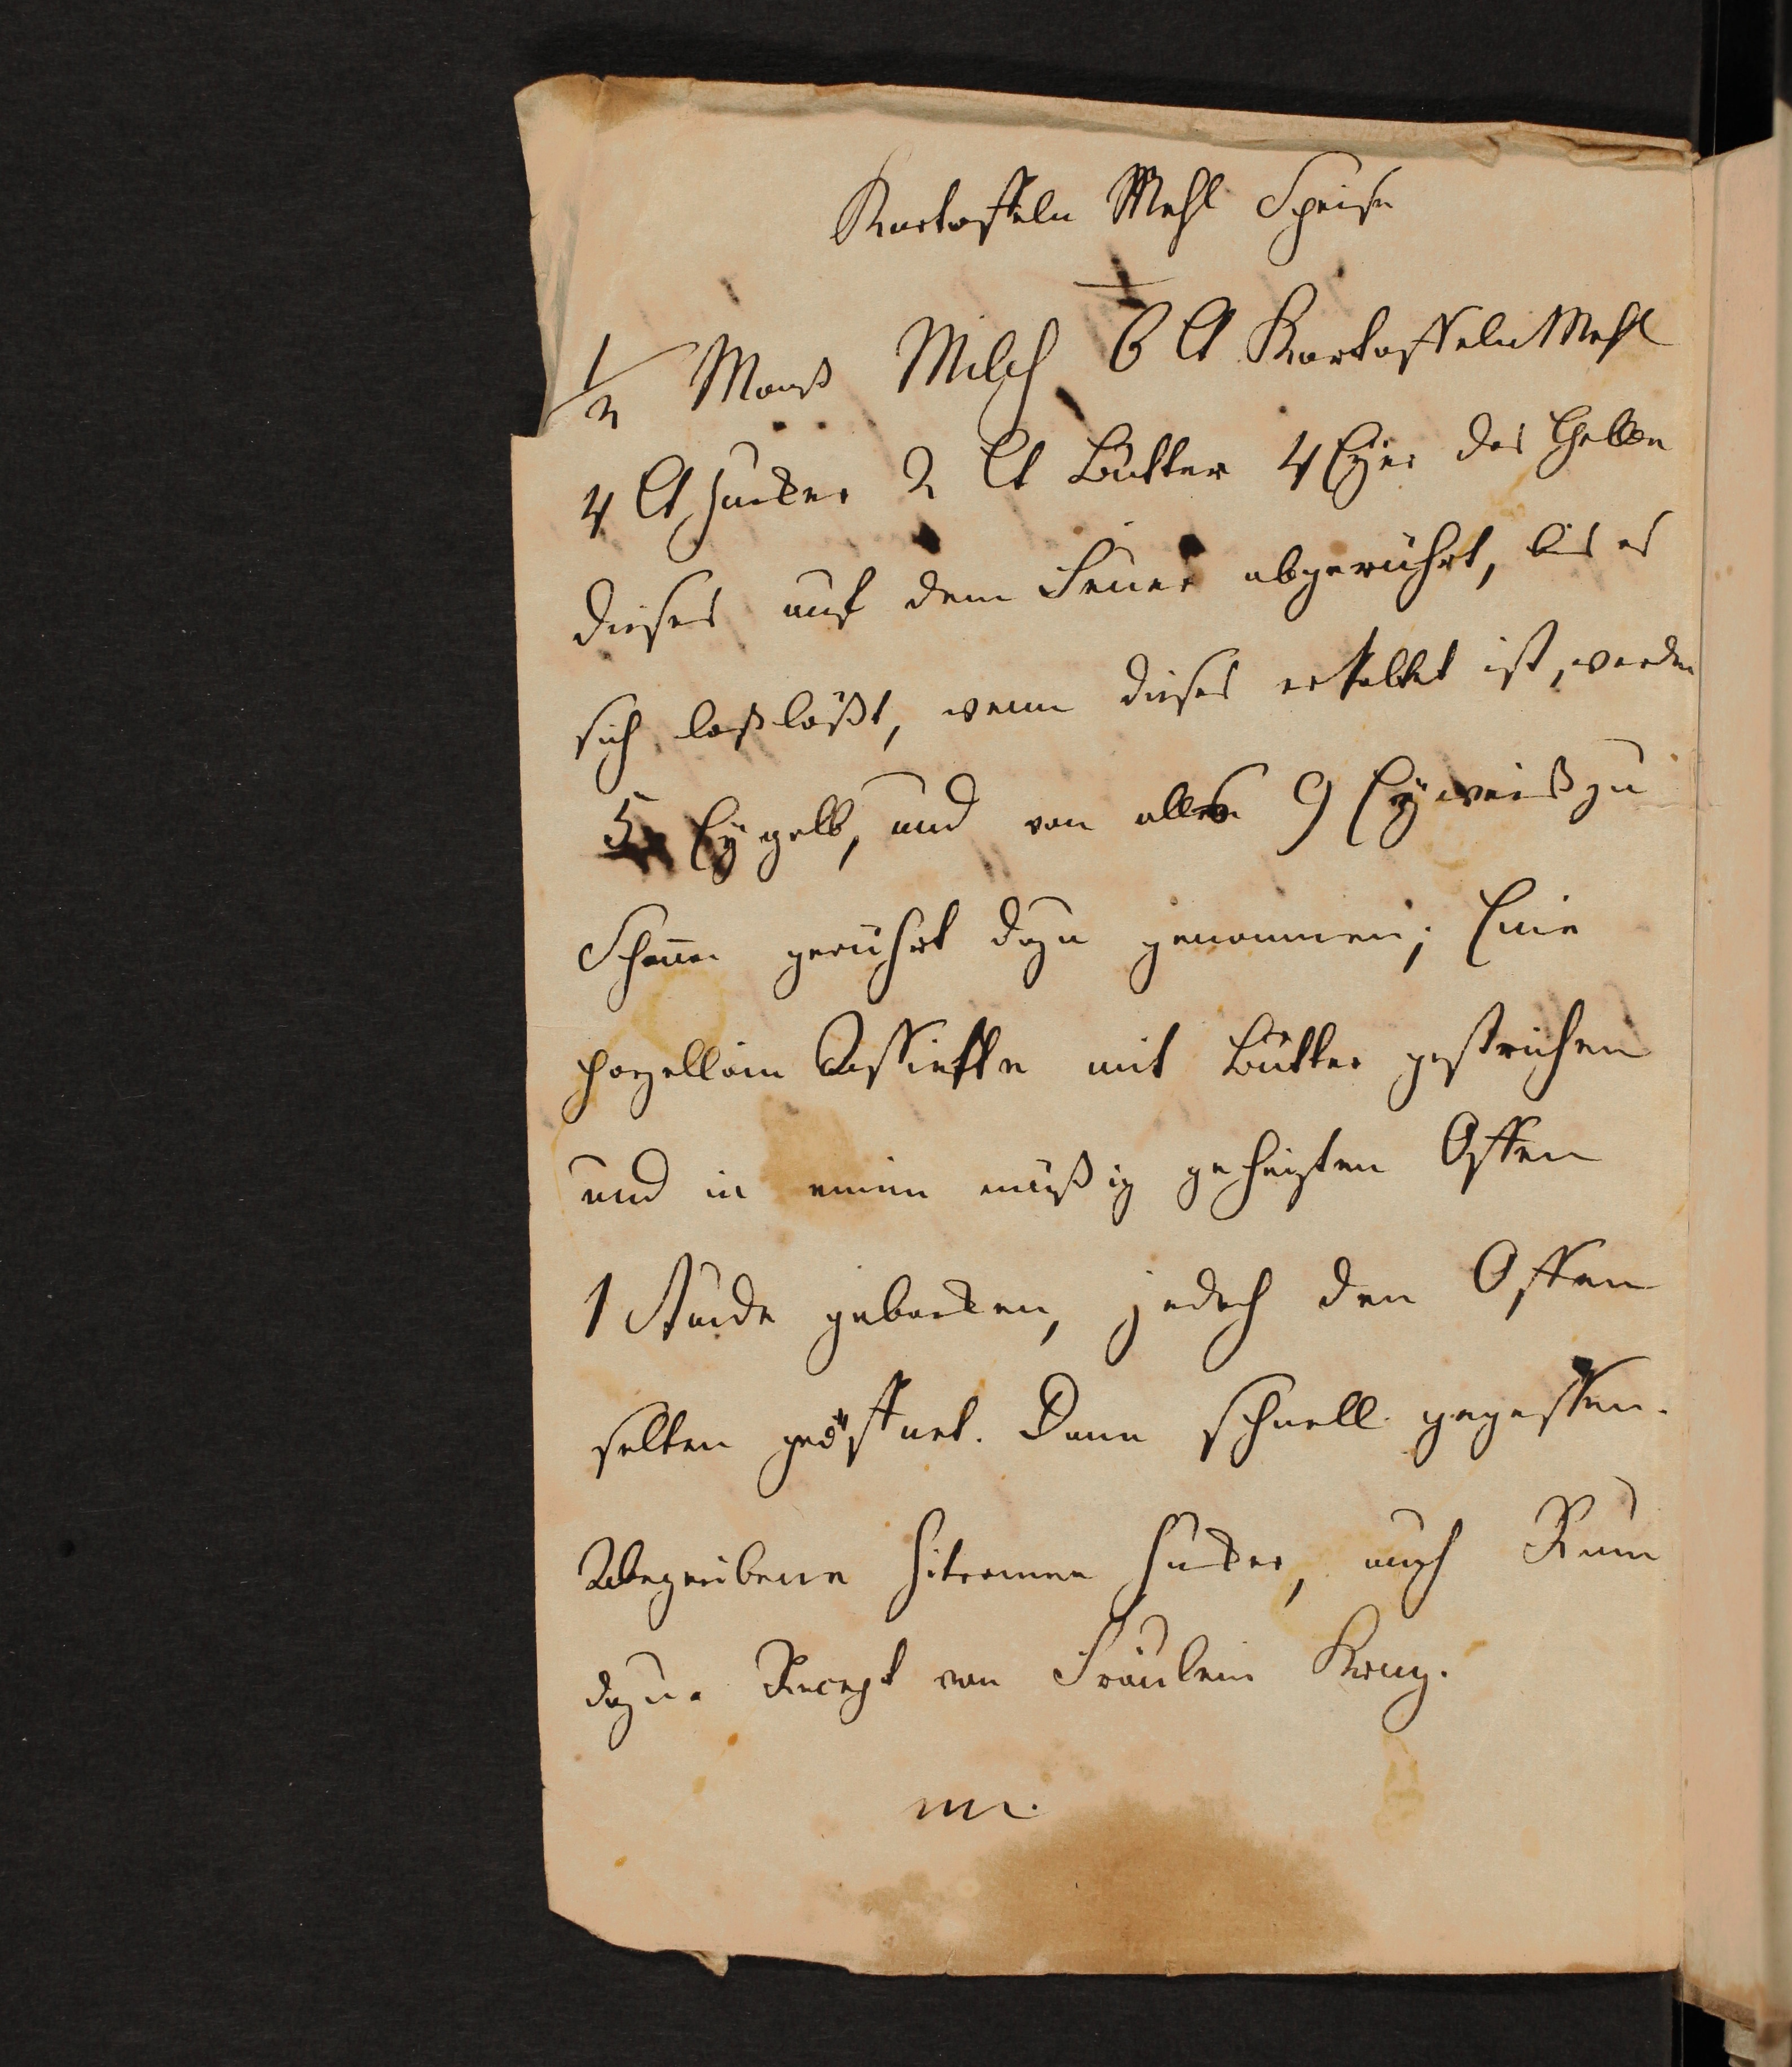 Kartoffeln Mehl Speise
1/2 Maaß Milch 6 Lt Kartoffeln Mehl
4 Lt Zucker 2 Lt Butter 4 Eyer das Gelbe
dieses auf dem Feuer abgerührt, bis es
sich loßlößt, wenn dieses erkaltet ist, werden
5 Eygelb, und von allen 9 Eyweiß zu
Schnee gerührt dazu genommen; Eine
porzellain Assiette mit Butter gestrichen
und in einem mäßig geheizten Offen
1 Stunde gebacken, jedoch den Offen
selten geöffnet. Dann schnell gegessen.
Abgeriebene Zitronen Zucker, auch Rum
dazu. Recept von Fräulein Krug.